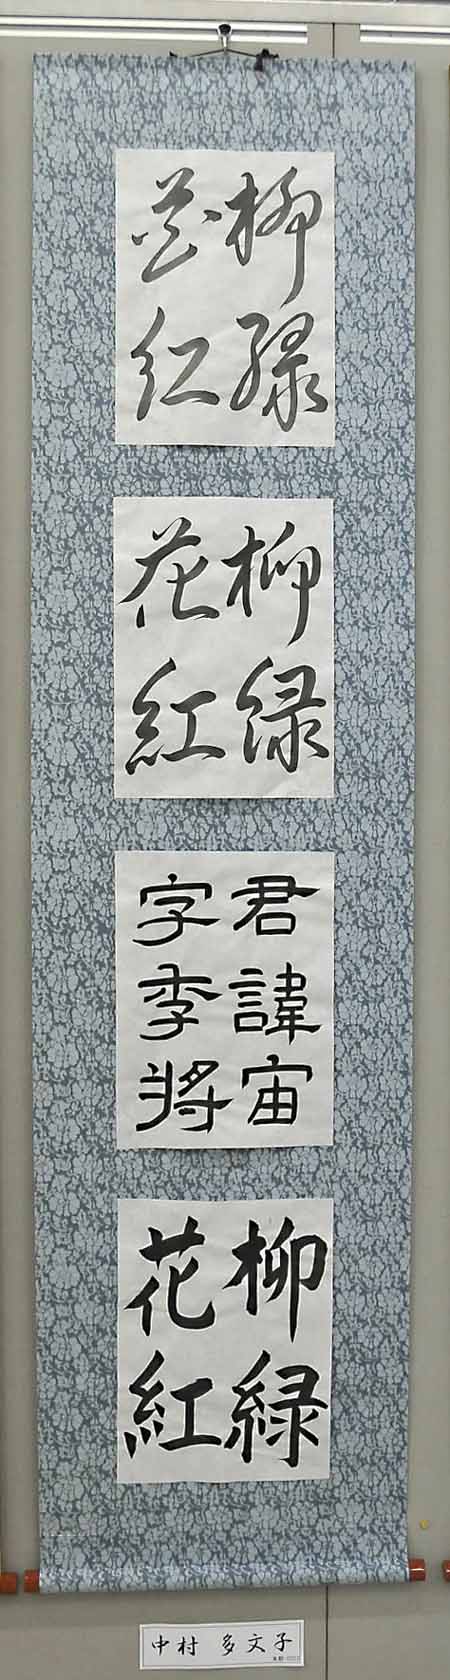 柳緑
花紅
柳緑
花紅
君諱宙
字季将
柳緑
花紅
中村 多文子